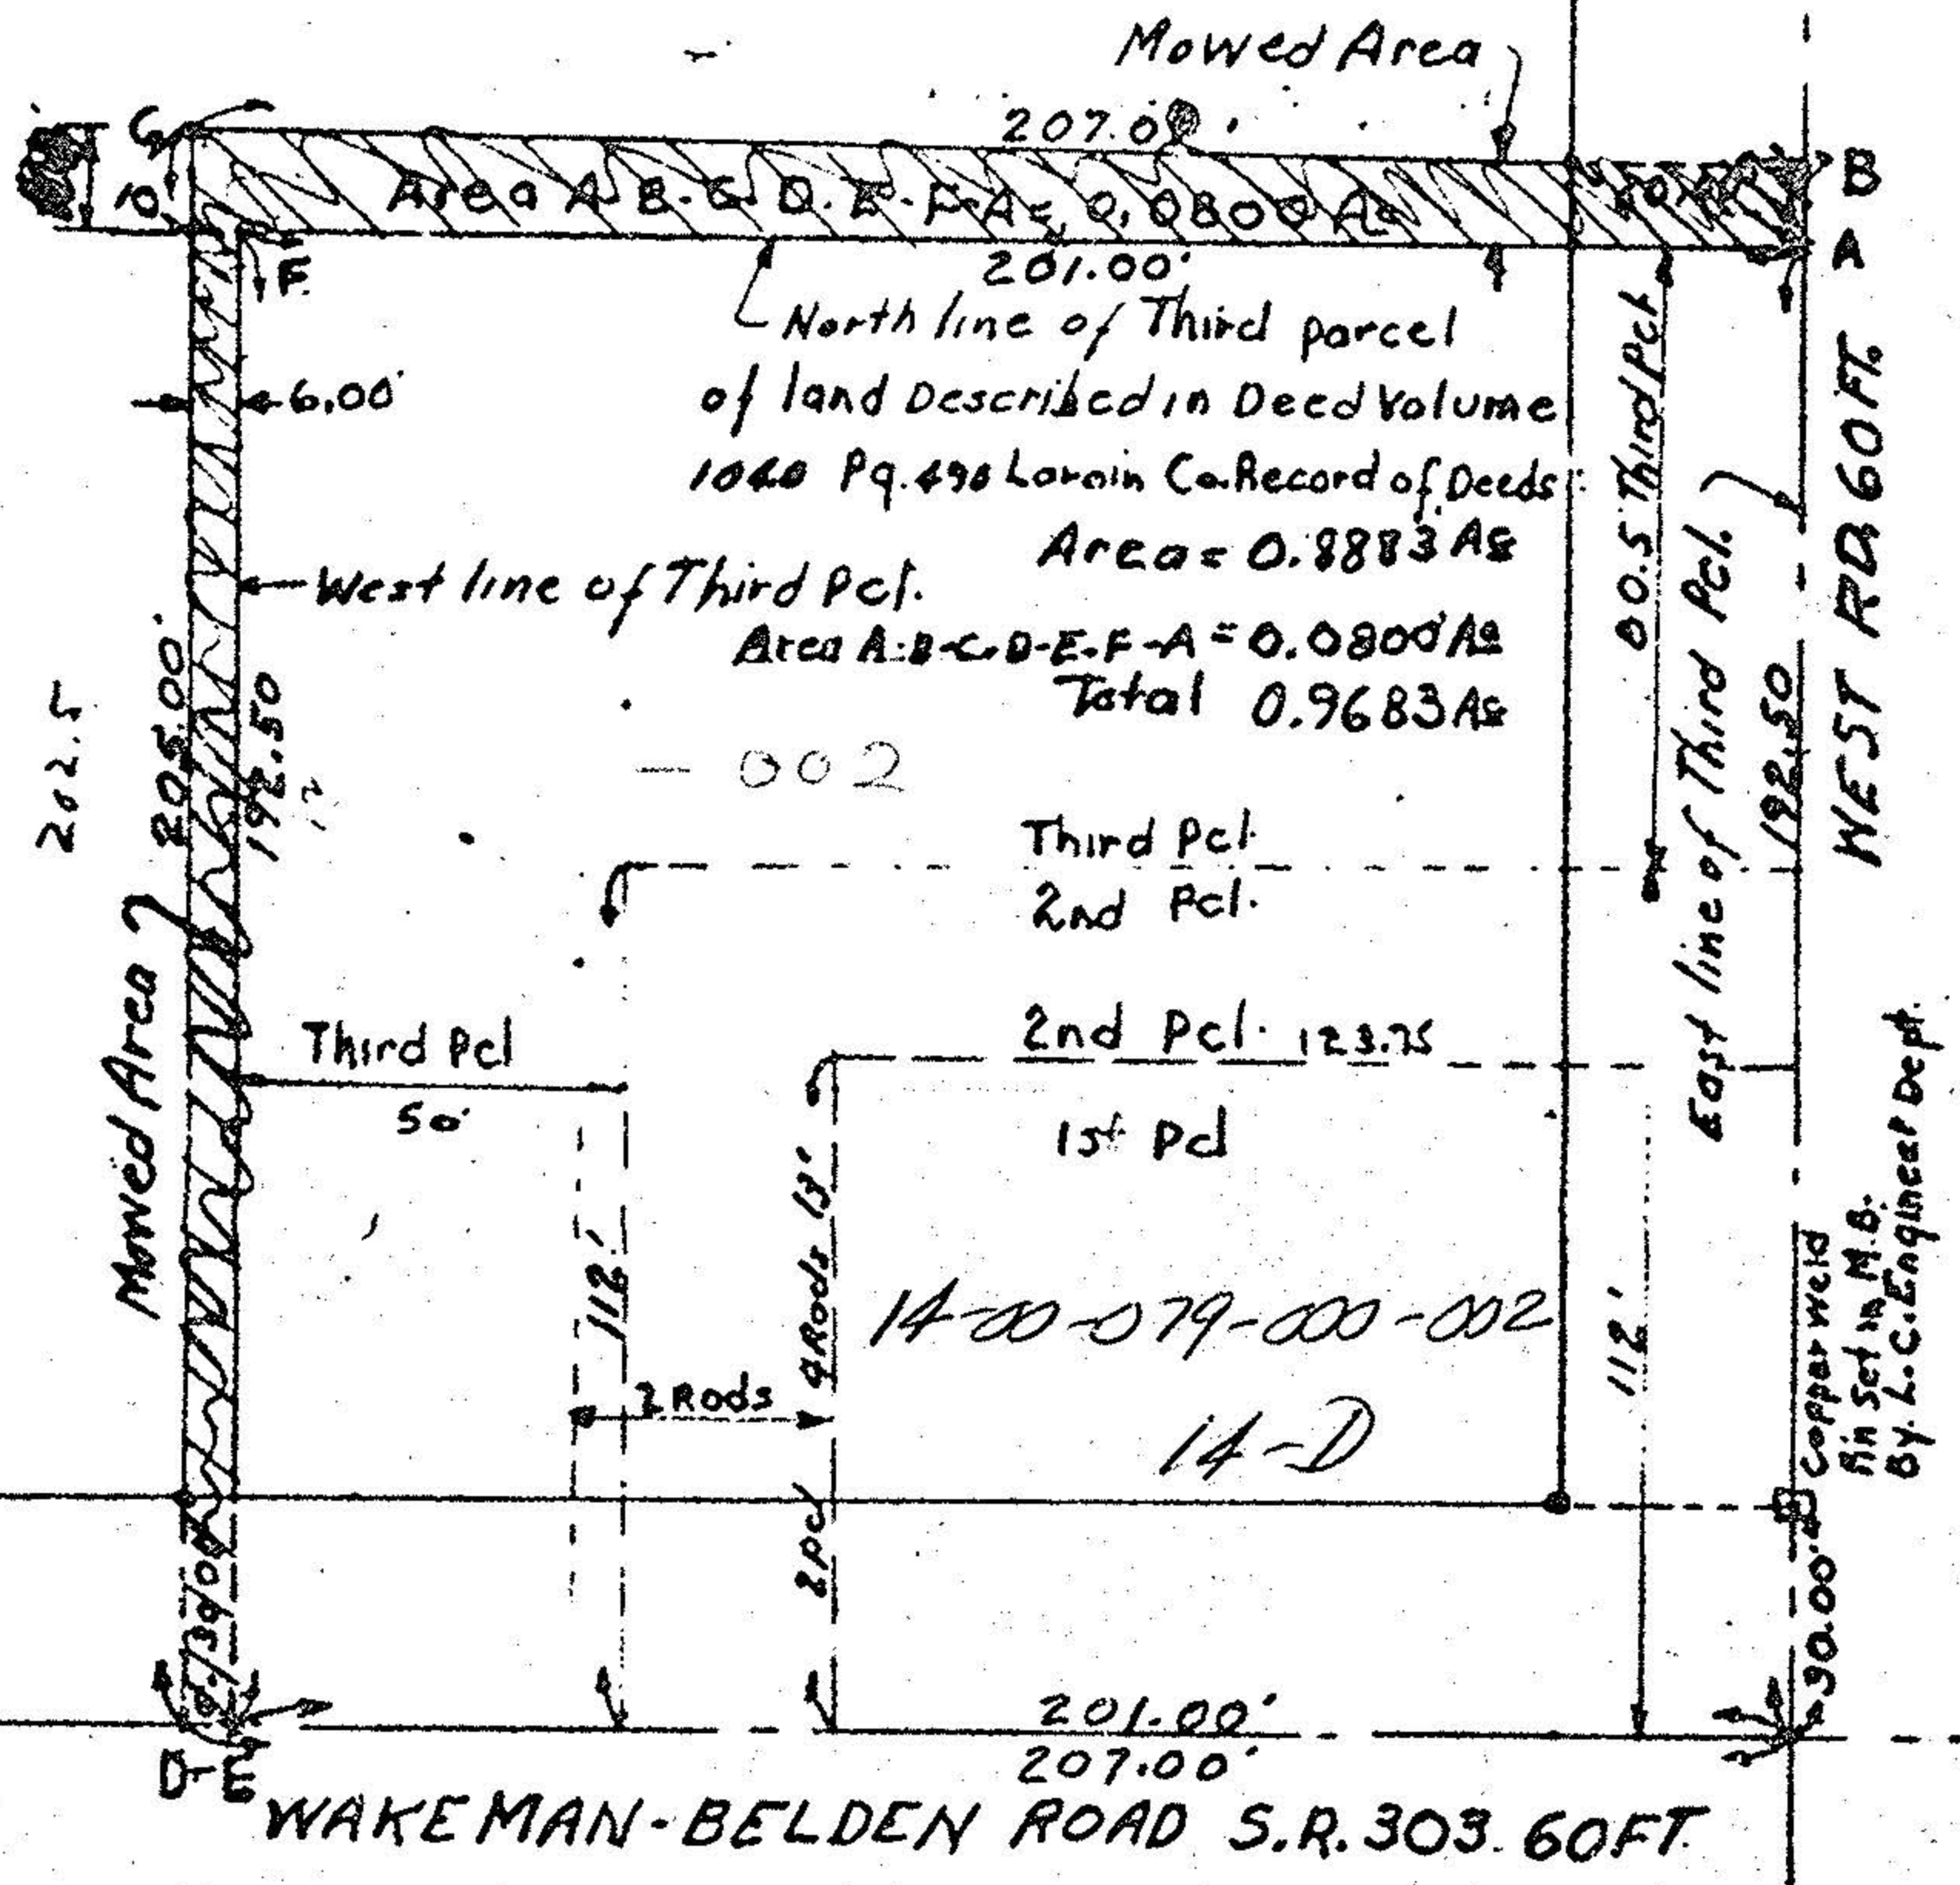 Mowed Area
207.0
G
B
10
Area A B-C D-E-F-A = 0.0800 Ac
A
F
201.00'
North line of Third parcel
of land Described in Deed Volume
1040 Pg. 490 Lorain Co. Record of Deeds
6.00'
Area = 0.8883 Ac
West line of Third Pcl.
Area A-B-C-D-E-F-A = 0.0800 Ac
Total 0.9683 Ac
- 002
202.5
205.00'
192.50
80.5 Third Pcl
East line of Third Pcl.
192.50
WEST RD. 60 FT.
Third Pcl
2nd Pcl.
Mowed Area
Third Pcl
50'
2nd Pcl. 123.75
1st Pcl
112'
9 Rods 13'
2 Rods
2 Pcl
14-00-079-000-002
14-D
112'
Copperweld
Pin Set in M.B.
By. L.C. Engineer Dept.
30.00'
D
E
201.00'
207.00'
WAKEMAN-BELDEN ROAD S.R. 303. 60 FT.